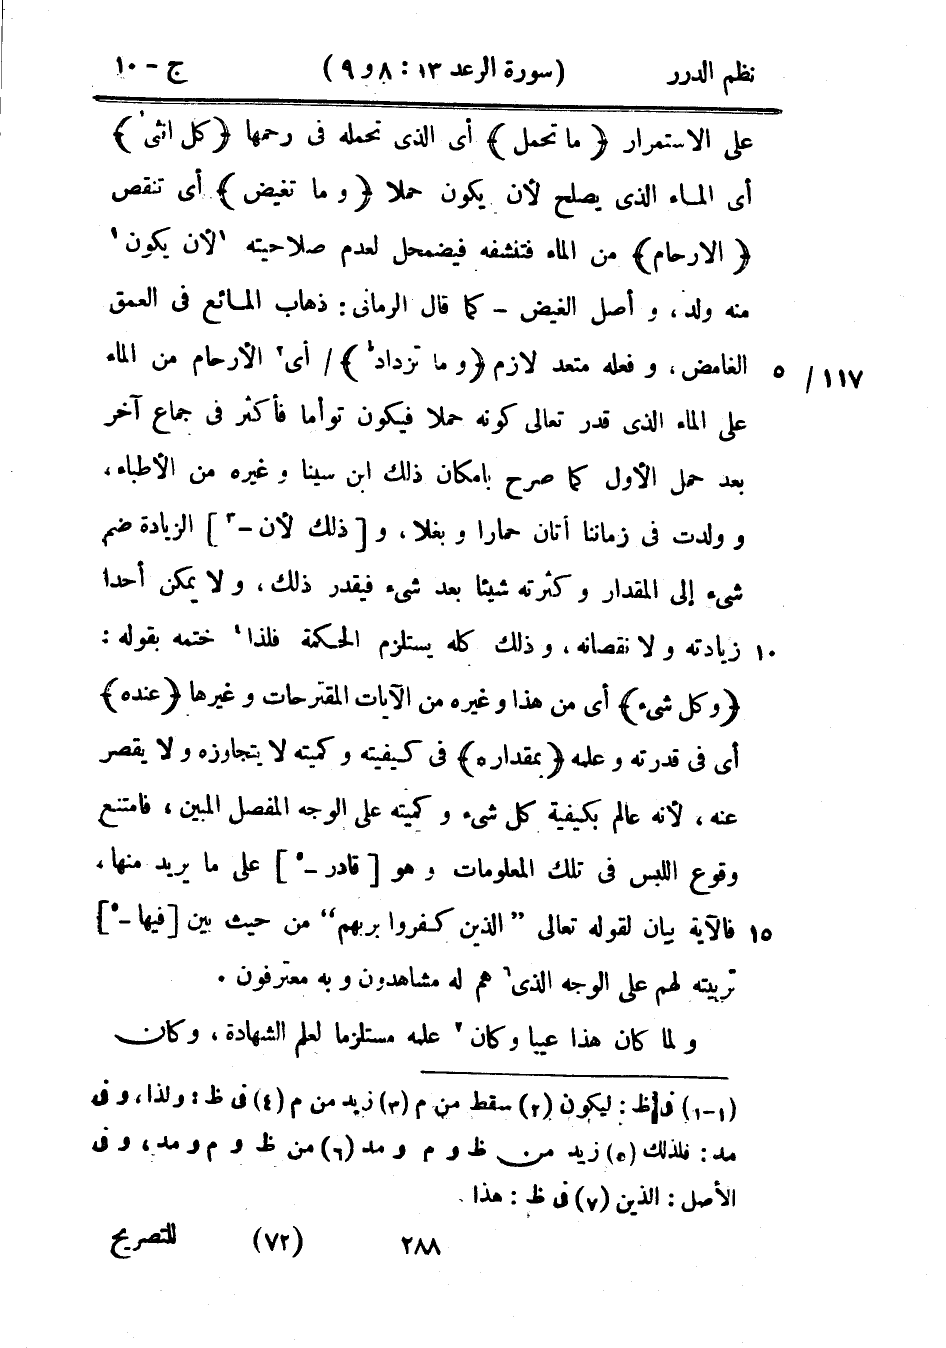 نظم الدرر (سورة الرعد ١٣ : ٨ و ٩) ج - ١٠
على الاستمرار ﴿ ما تحمل ﴾ أى الذى تحمله فى رحمها ﴿ كل انثى ﴾
أى المـاء الذى يصلح لأن يكون حملا ﴿ و ما تغيض ﴾ أى تنقص
﴿ الارحام ﴾ من الماء فتنشفه فيضمحل لعدم صلاحيته ¹لأن يكون¹
منه ولد، و أصل الغيض - كما قال الرمانى: ذهاب المـائع فى العمق
الغامض، و فعله متعد لازم ﴿ و ما تزداد ﴾ / أى² الأرحام من الماء ٥ / ١١٧
على الماء الذى قدر تعالى كونه حملا فيكون توأما فأكثر فى جماع آخر
بعد حمل الأول كما صرح بامكان ذلك ابن سينا و غيره من الأطباء،
و ولدت فى زماننا أتان حمارا و بغلا، و [ ذلك لأن -³ ] الزيادة ضم
شىء إلى المقدار و كثرته شيئا بعد شىء فيقدر ذلك، و لا يمكن أحدا
زيادته و لا نقصانه، و ذلك كله يستلزم الحكمة فلذا⁴ ختمه بقوله : ١٠
﴿ و كل شىء ﴾ أى من هذا و غيره من الآيات المقترحات و غيرها ﴿ عنده ﴾
أى فى قدرته و علمه ﴿ بمقدار ه ﴾ فى كيفيته و كميته لا يتجاوزه و لا يقصر
عنه، لأنه عالم بكيفية كل شىء و كميته على الوجه المفصل المبين، فامتنع
وقوع اللبس فى تلك المعلومات و هو [ قادر -⁵ ] على ما يريد منها،
فالآية بيان لقوله تعالى " الذين كفروا بربهم " من حيث بين [ فيها -⁵ ] ١٥
تربيته لهم على الوجه الذى⁶ هم له مشاهدون و به معترفون .
و لما كان هذا عيبا و كان⁷ علمه مستلزما لعلم الشهادة، و كان
(١-١) فى ظ : ليكون (٢) سقط من م (٣) زيد من م (٤) فى ظ : ولذا، و فى
مد : فلذلك (٥) زيد من ظ و م و مد (٦) من ظ و م و مد، و فى
الأصل : الذين (٧) فى ظ : هذا .
٢٨٨ (٧٢) للتصريح